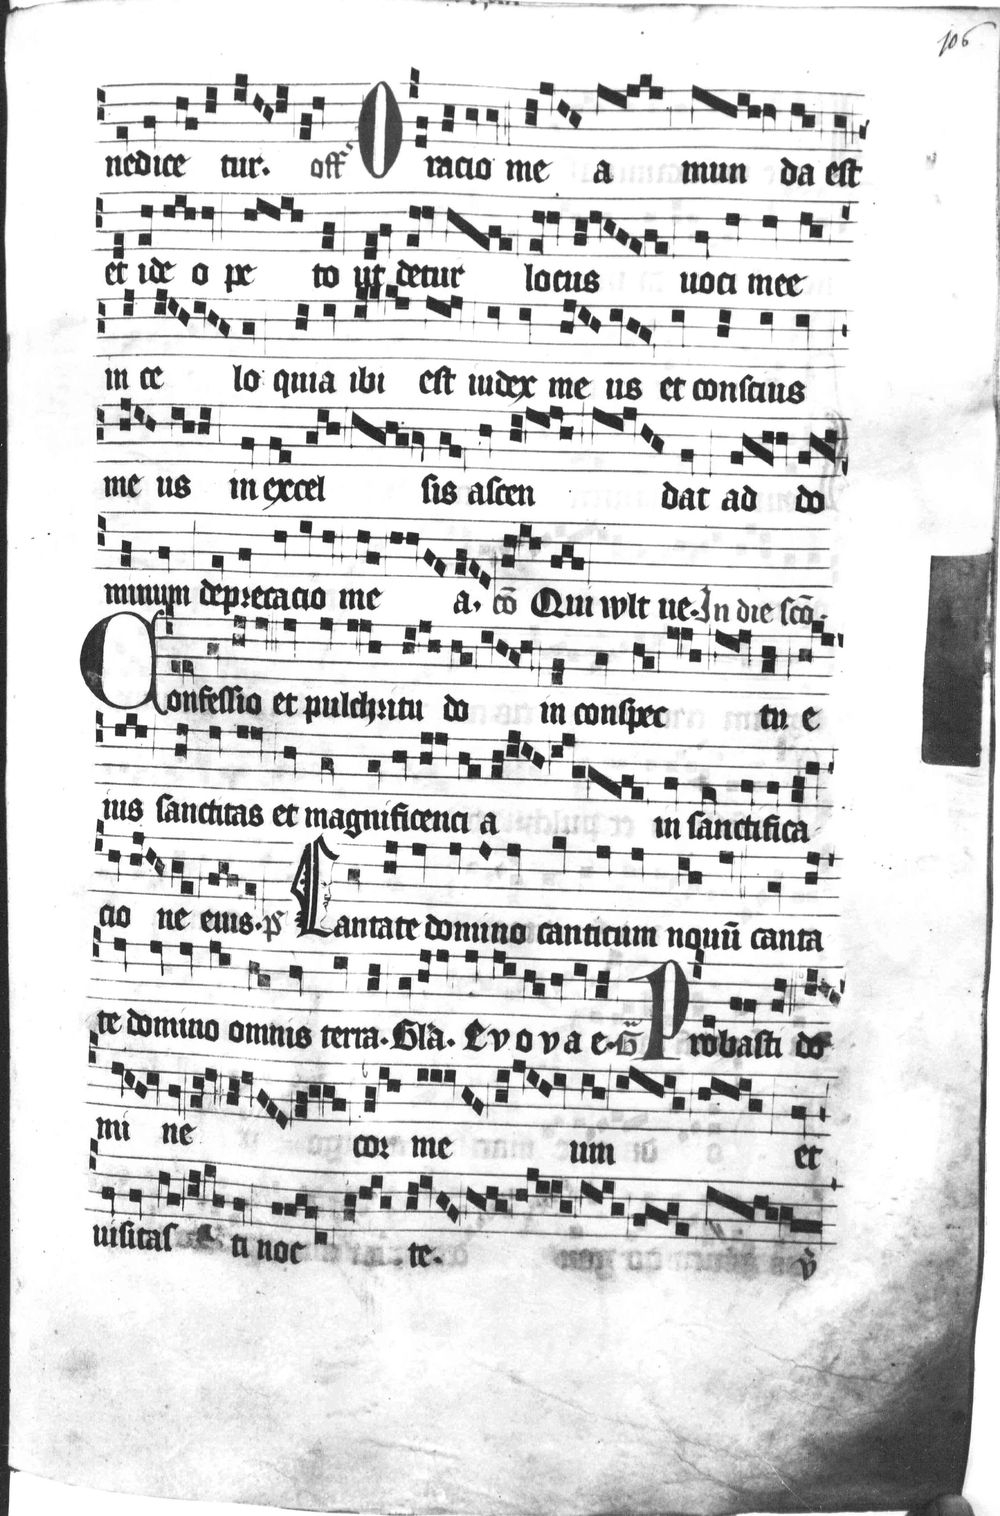 106
nedice tur. off̃ Oracio me a mun da est
et ide o pe to ut detur locus uoci mee
in ce lo quia ibi est iudex me us et conscius
me us in excel sis ascen dat ad do
minum deprecacio me a. cō Qui wlt ue. In die scō.
Confessio et pulchritu do in conspec tu e
ius sanctitas et magnificenci a in sanctifica
cio ne eius. ps Cantate domino canticum nouū canta
te domino omnis terra. Gła. E v o v a e. G̃ Probasti do
mi ne cor me um et
uisitas ti noc te. v̄